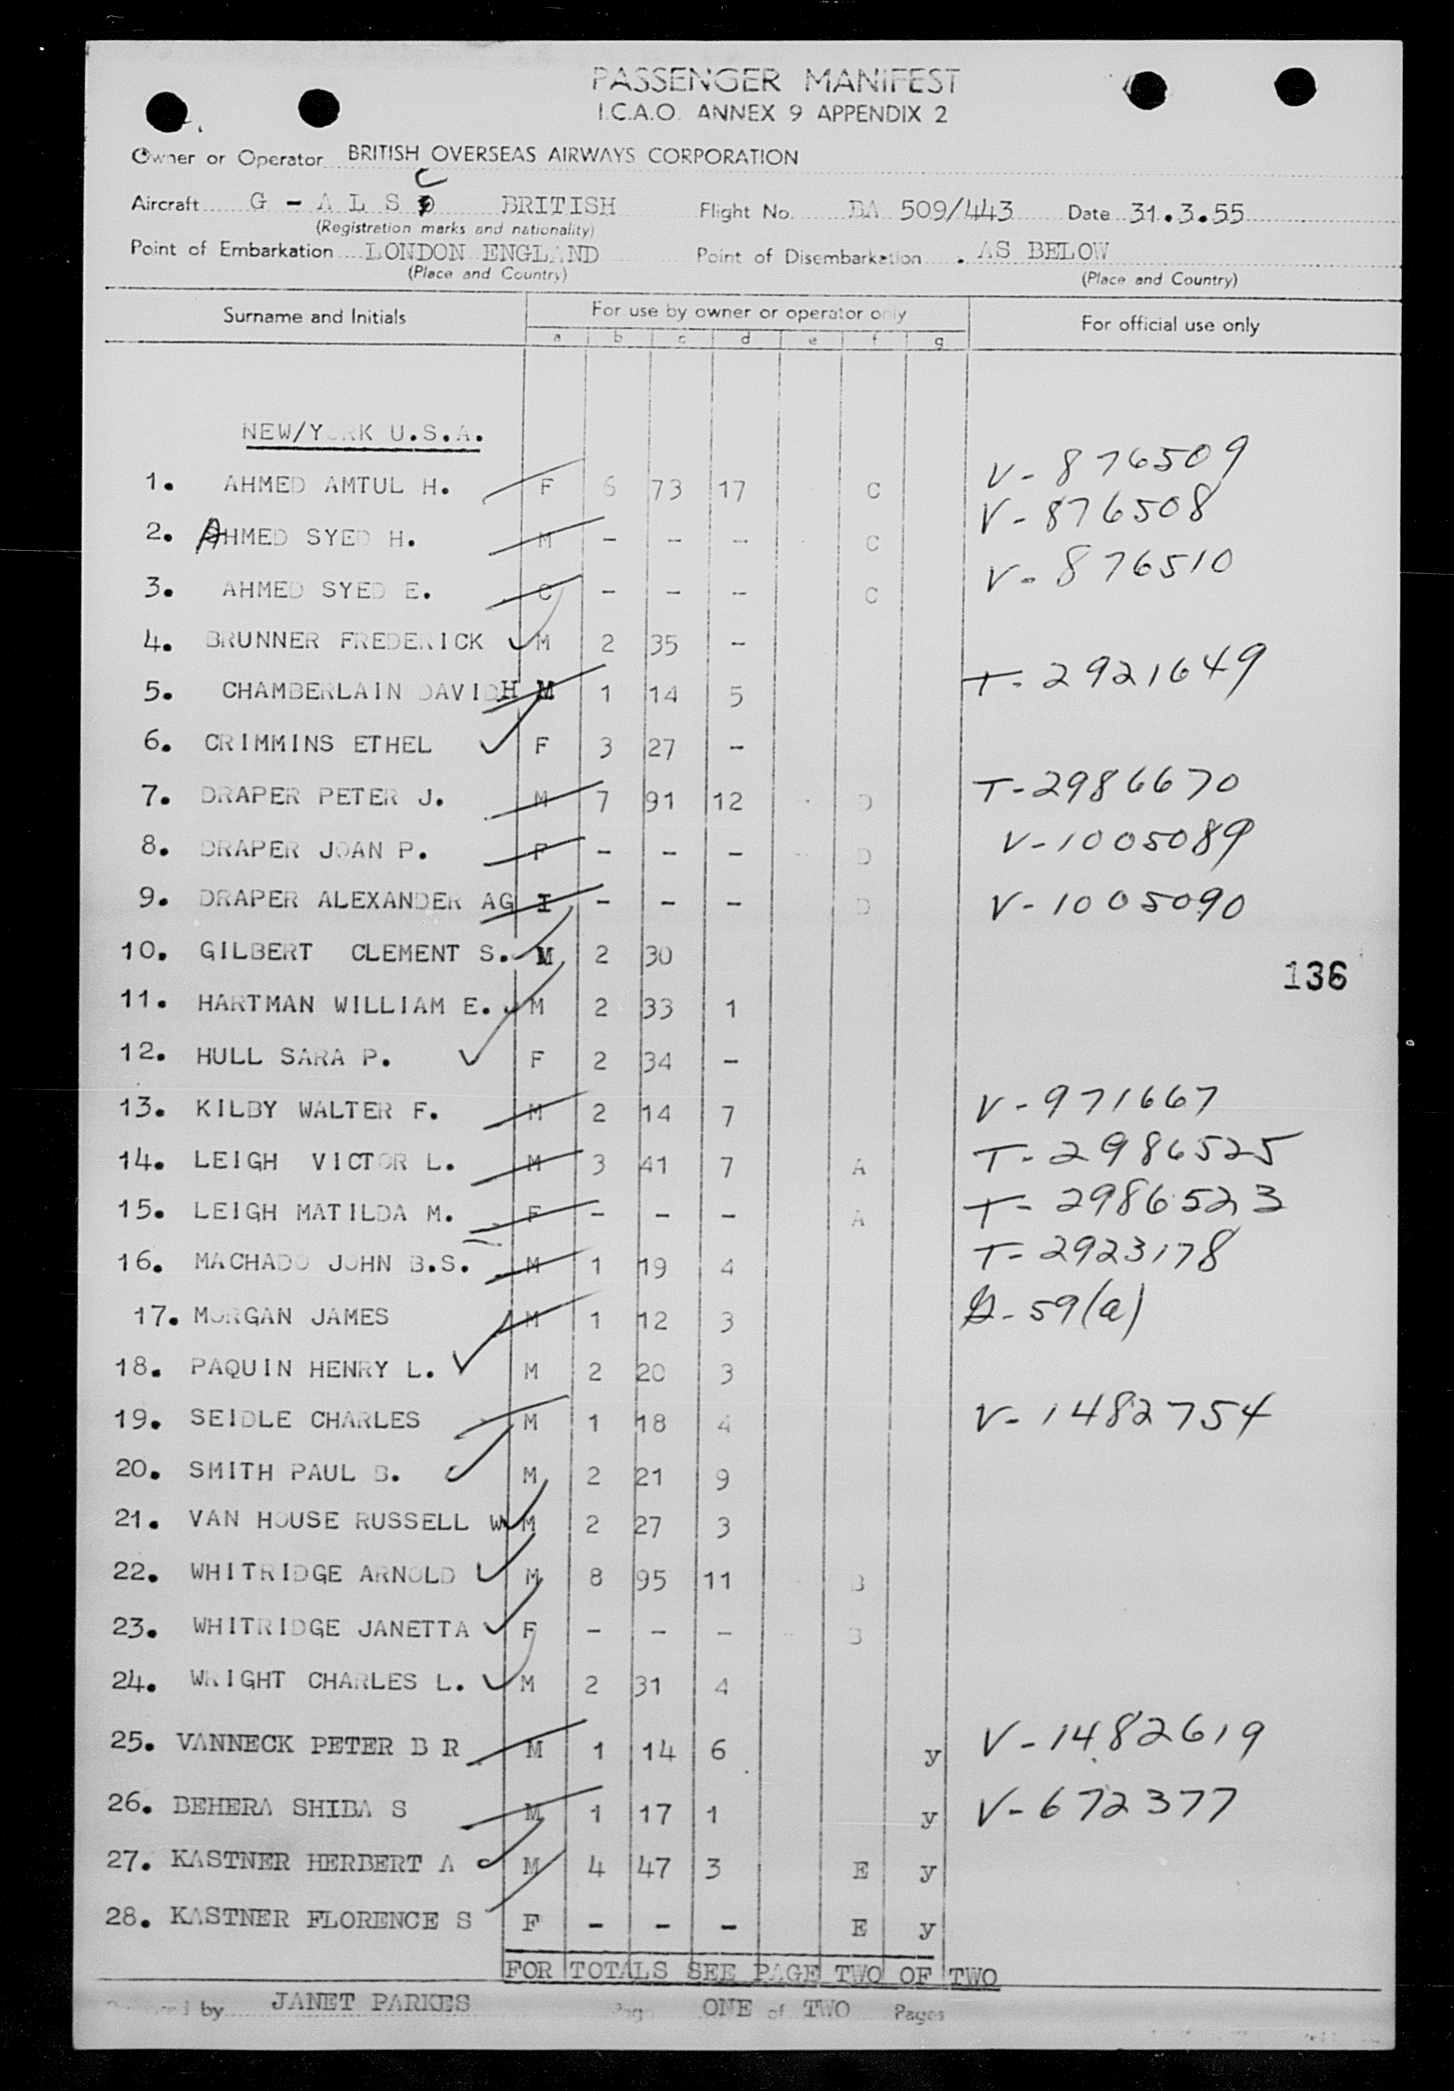 PASSENGER MANIFEST
I.C.A.O. ANNEX 9 APPENDIX 2
Owner or Operator BRITISH OVERSEAS AIRWAYS CORPORATION
Aircraft G - A L S C BRITISH Flight No. BA 509/443 Date 31.3.55
(Registration marks and nationality)
Point of Embarkation LONDON ENGLAND Point of Disembarkation AS BELOW
(Place and Country) (Place and Country)
Surname and Initials For use by owner or operator only For official use only
a b c d e f g
NEW/YORK U.S.A.
1. AHMED AMTUL H. F 6 73 17 C V-876509
2. AHMED SYED H. M - - - C V-876508
3. AHMED SYED E. C - - - C V-876510
4. BRUNNER FREDERICK M 2 35 -
5. CHAMBERLAIN DAVID H M 1 14 5 T-2921649
6. CRIMMINS ETHEL F 3 27 -
7. DRAPER PETER J. M 7 91 12 D T-2986670
8. DRAPER JOAN P. F - - - D V-1005089
9. DRAPER ALEXANDER AG I - - - D V-1005090
10. GILBERT CLEMENT S. M 2 30
136
11. HARTMAN WILLIAM E. M 2 33 1
12. HULL SARA P. F 2 34 -
13. KILBY WALTER F. M 2 14 7 V-971667
14. LEIGH VICTOR L. M 3 41 7 A T-2986525
15. LEIGH MATILDA M. F - - - A T-2986523
16. MACHADO JOHN B.S. M 1 19 4 T-2923178
17. MORGAN JAMES M 1 12 3 G-59(a)
18. PAQUIN HENRY L. M 2 20 3
19. SEIDLE CHARLES M 1 18 4 V-1482754
20. SMITH PAUL B. M 2 21 9
21. VAN HOUSE RUSSELL W M 2 27 3
22. WHITRIDGE ARNOLD M 8 95 11 B
23. WHITRIDGE JANETTA F - - - B
24. WRIGHT CHARLES L. M 2 31 4
25. VANNECK PETER B R M 1 14 6 y V-1482619
26. BEHERA SHIBA S M 1 17 1 y V-672377
27. KASTNER HERBERT A M 4 47 3 E y
28. KASTNER FLORENCE S F - - - E y
FOR TOTALS SEE PAGE TWO OF TWO
by JANET PARKES Page ONE of TWO Pages